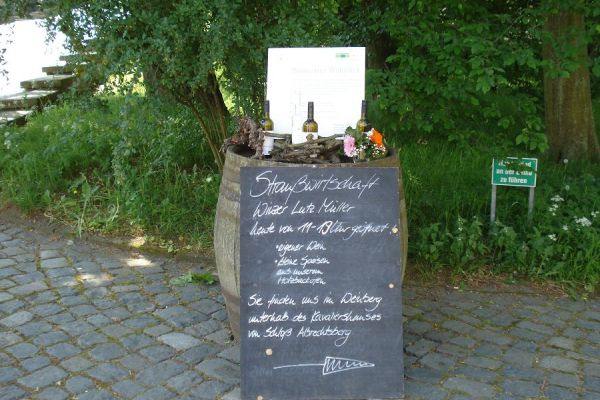 Straußwirtschaft
Winzer Lutz Müller
heute von 11-19 Uhr geöffnet
• eigener Wein
• kleine Speisen
aus unserem
Holzbackofen
Sie finden uns im Weinberg
unterhalb des Kavaliershauses
von Schloß Albrechtsberg
an der Leine
zu führen